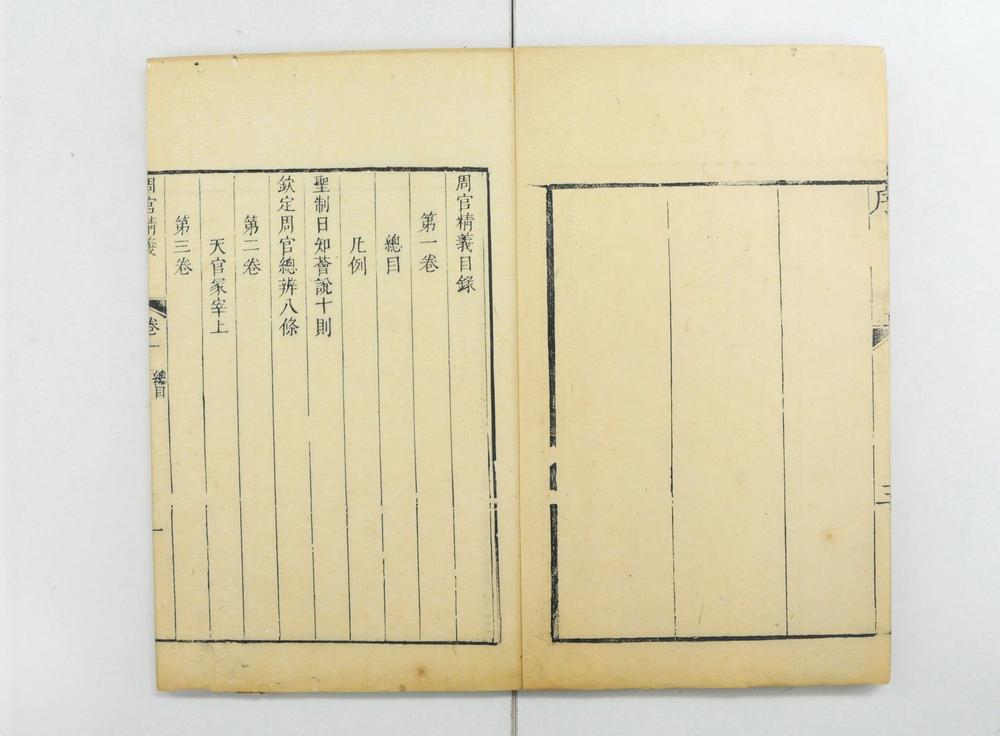 序
三
周官精義目錄
第一卷
總目
凡例
聖制日知薈說十則
欽定周官總辨八條
第二卷
天官冢宰上
第三卷
周官精義
卷一
總目
一